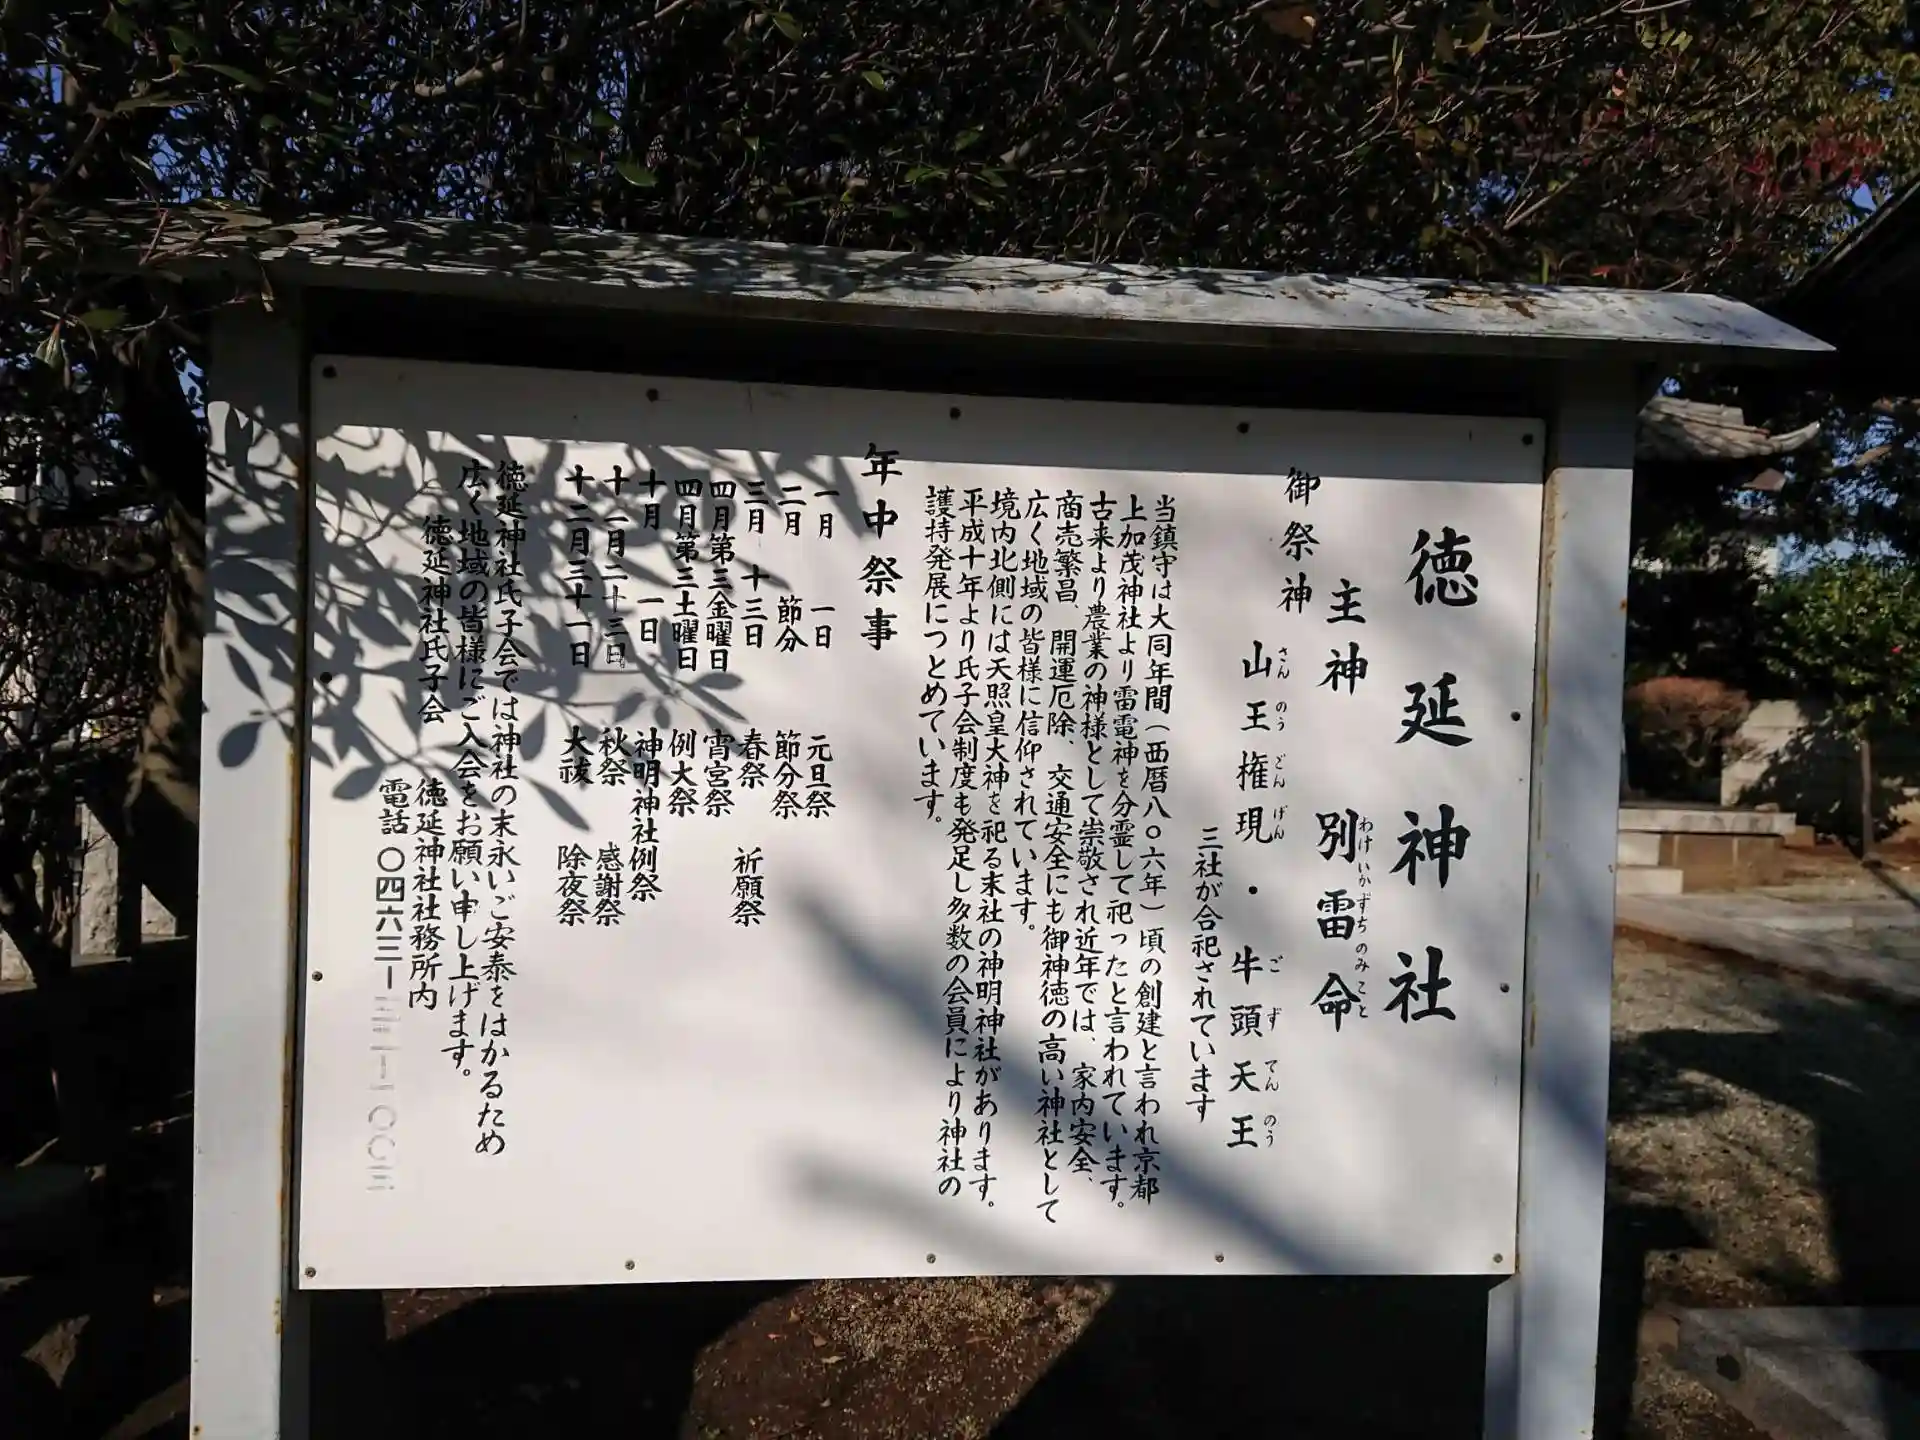 徳延神社
主神 別雷命
わけいかずちのみこと
御祭神 山王権現・牛頭天王
さんのうごんげん ごずてんのう
三社が合祀されています
当鎮守は大同年間(西暦八〇六年)頃の創建と言われ京都
上加茂神社より雷電神を分霊して祀ったと言われています。
古来より農業の神様として崇敬され近年では、家内安全、
商売繁昌、開運厄除、交通安全にも御神徳の高い神社として
広く地域の皆様に信仰されています。
境内北側には天照皇大神を祀る末社の神明神社があります。
平成十年より氏子会制度も発足し多数の会員により神社の
護持発展につとめています。
年中祭事
一月 一日 元旦祭
二月 節分 節分祭
三月 十三日 春祭 祈願祭
四月第三金曜日 宵宮祭
四月第三土曜日 例大祭
十月 一日 神明神社例祭
十一月二十三日 秋祭 感謝祭
十二月三十一日 大祓 除夜祭
徳延神社氏子会では神社の末永いご安泰をはかるため
広く地域の皆様にご入会をお願い申し上げます。
徳延神社氏子会 徳延神社社務所内
電話 〇四六三ー